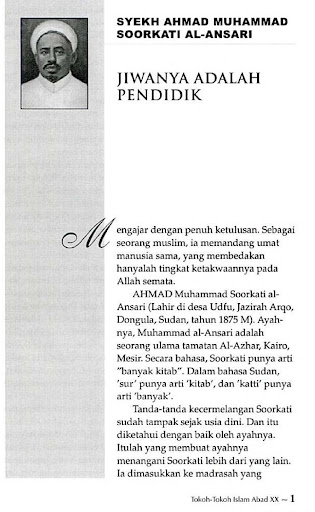 SYEKH AHMAD MUHAMMAD
SOORKATI AL-ANSARI
JIWANYA ADALAH
PENDIDIK
Mengajar dengan penuh ketulusan. Sebagai
seorang muslim, ia memandang umat
manusia sama, yang membedakan
hanyalah tingkat ketakwaannya pada
Allah semata.
AHMAD Muhammad Soorkati al-
Ansari (Lahir di desa Udfu, Jazirah Arqo,
Dongula, Sudan, tahun 1875 M). Ayah-
nya, Muhammad al-Ansari adalah
seorang ulama tamatan Al-Azhar, Kairo,
Mesir. Secara bahasa, Soorkati punya arti
"banyak kitab". Dalam bahasa Sudan,
'sur' punya arti 'kitab', dan 'katti' punya
arti 'banyak'.
Tanda-tanda kecermelangan Soorkati
sudah tampak sejak usia dini. Dan itu
diketahui dengan baik oleh ayahnya.
Itulah yang membuat ayahnya
menangani Soorkati lebih dari yang lain.
Ia dimasukkan ke madrasah yang
Tokoh-Tokoh Islam Abad XX — 1